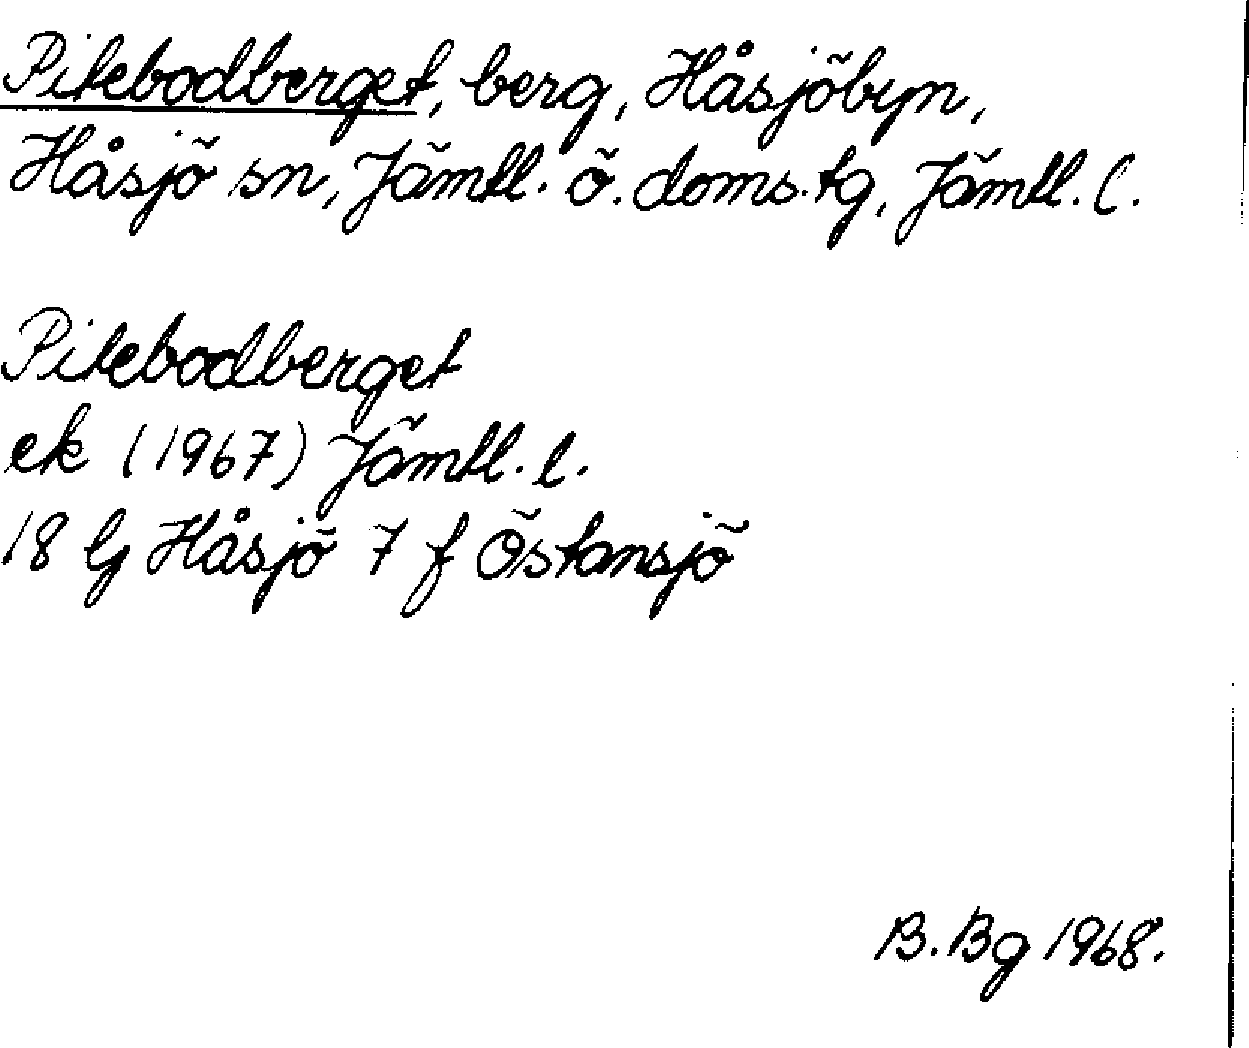 Pitebodberget, berg, Håsjöbyn,
Håsjö sn, Jämtl. ö. doms.tg, Jämtl. l.
Pitebodberget
ek (1967) Jämtl. l.
18 G Håsjö 7 f Östansjö
B. Bg 1968.